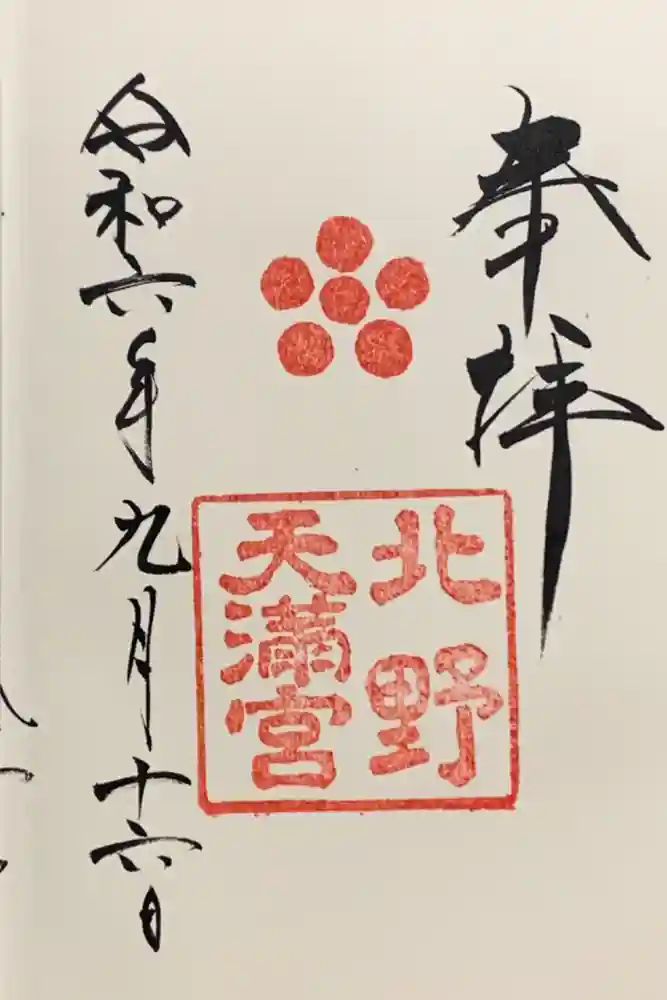 奉拝
北野
天満宮
令和六年九月十六日